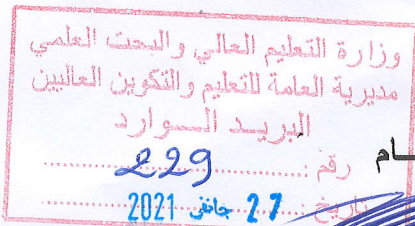 وزارة التعليم العالي والبحث العلمي
مديرية العامة للتعليم والتكوين العاليين
البريد الـــوارد
رقم : 229
ـام
تاريخ : 27 جانفي 2021